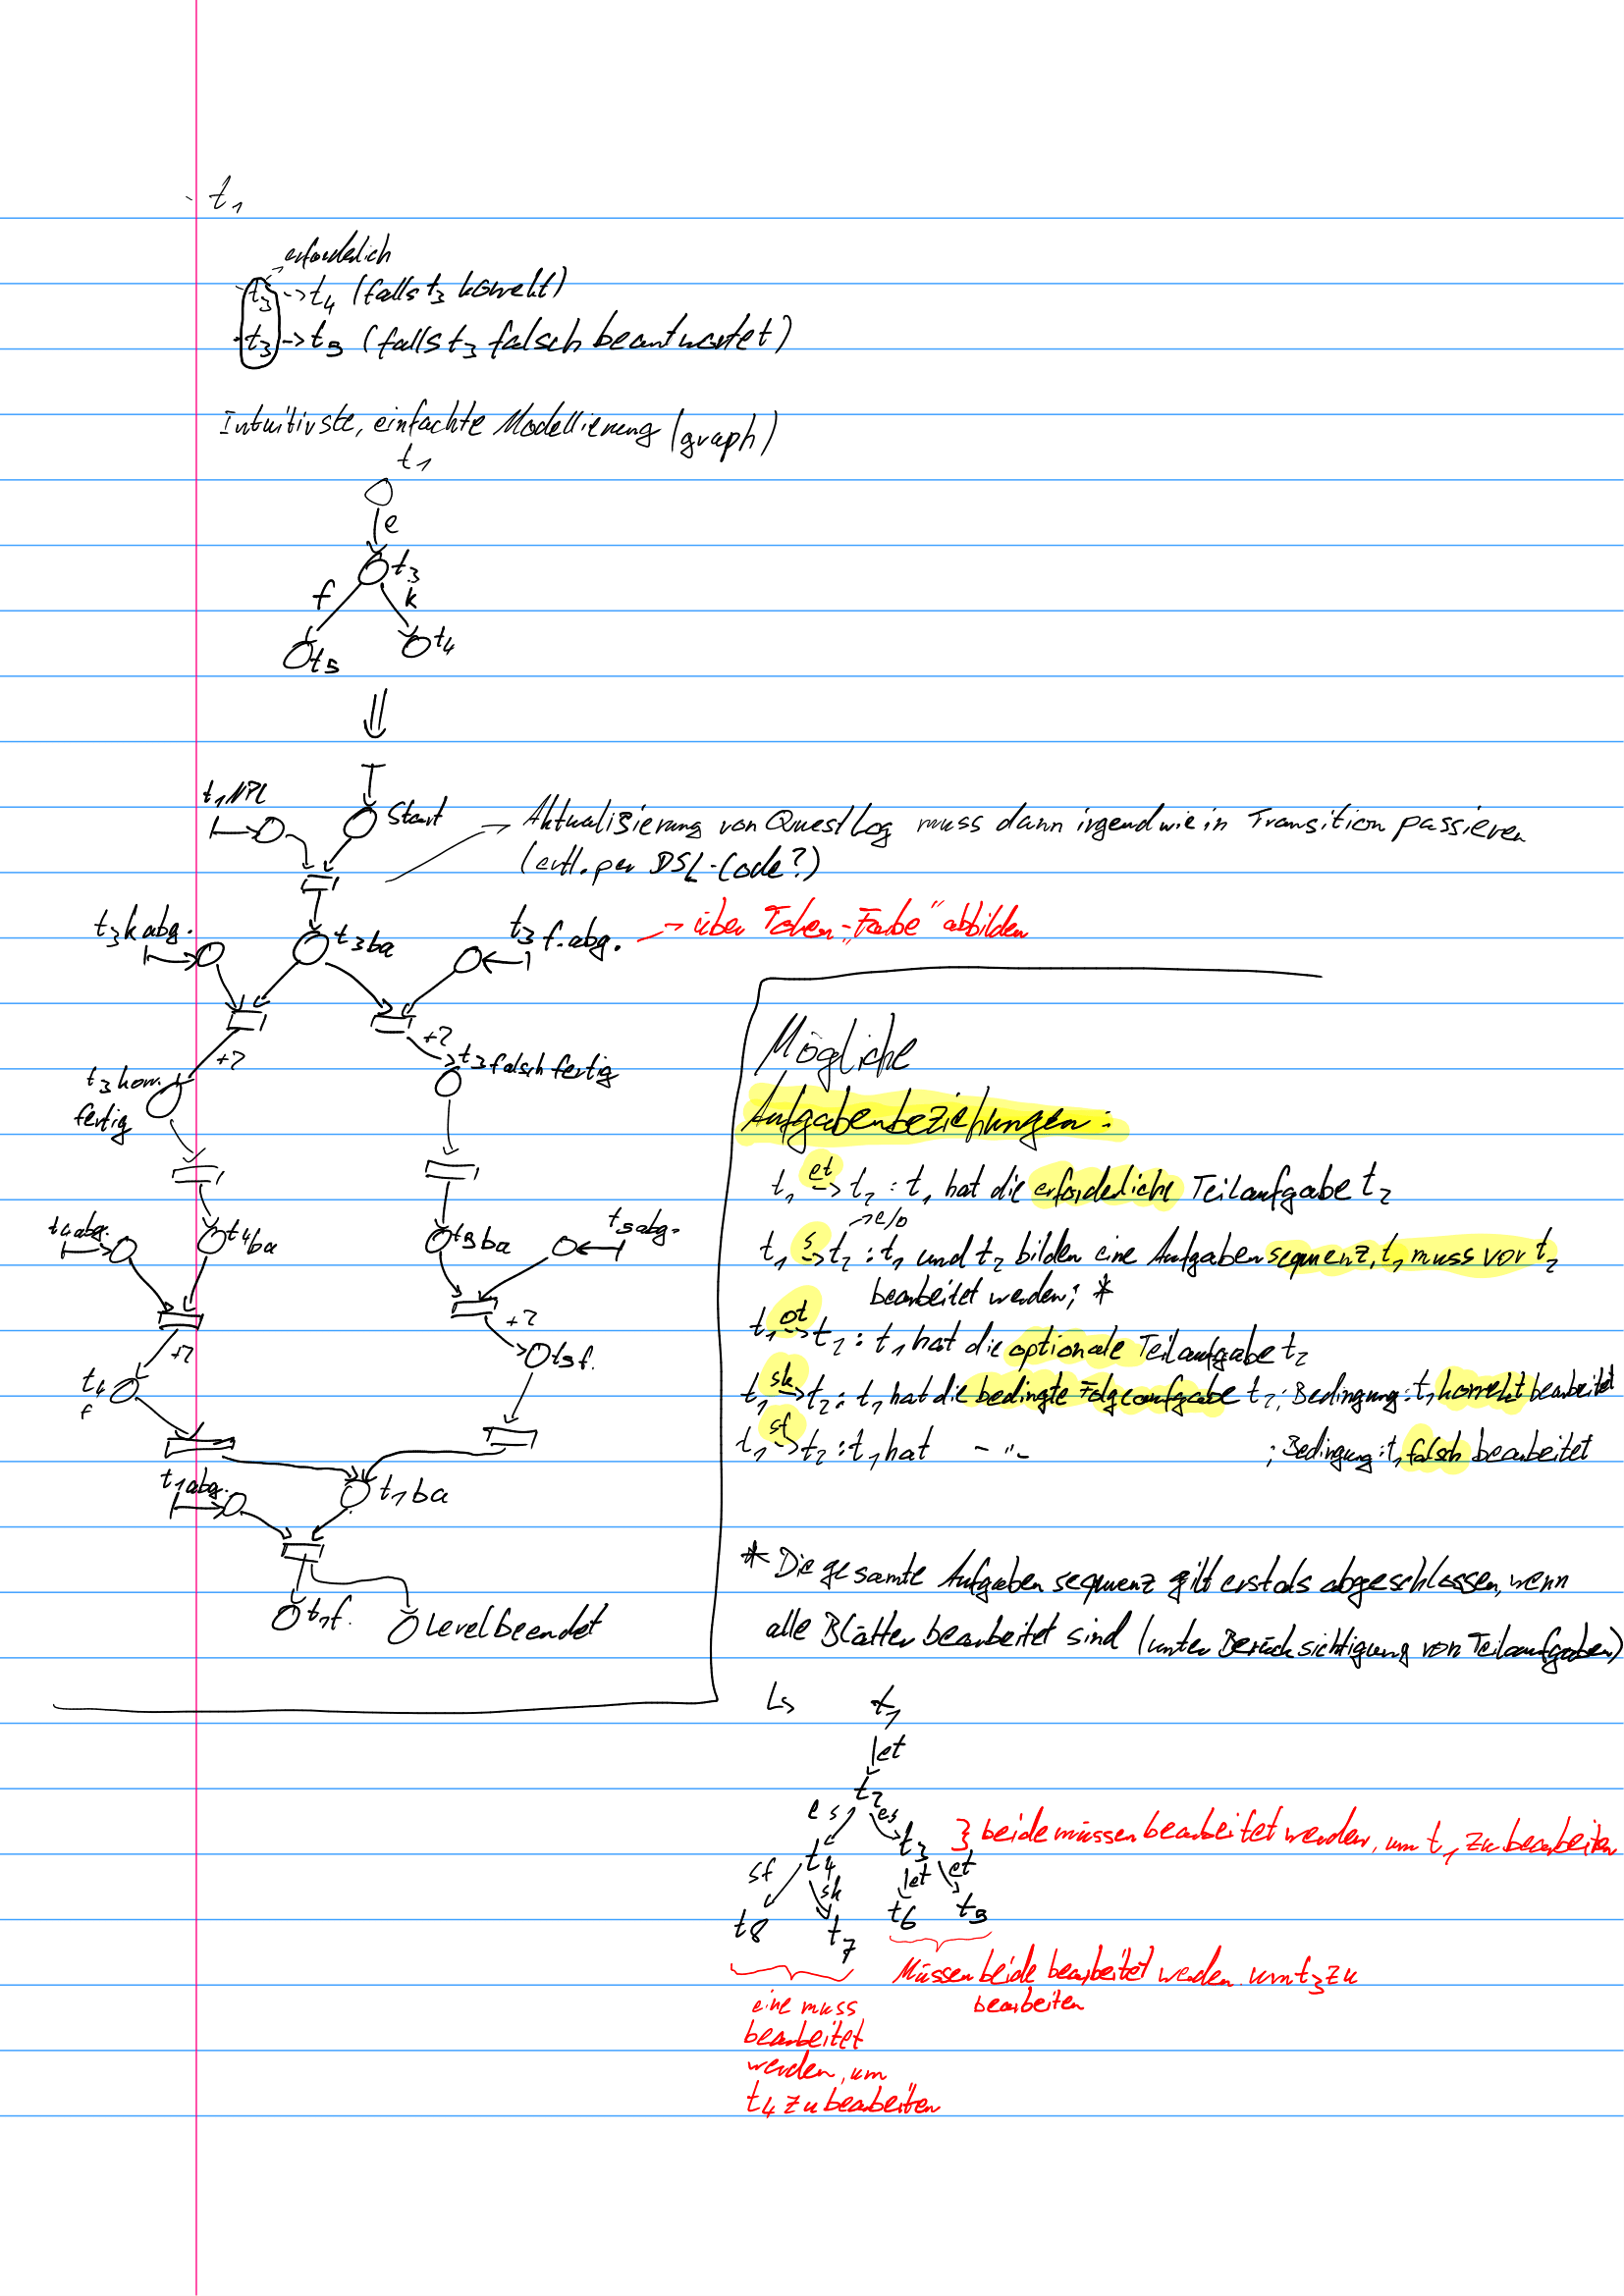 - t1
erforderlich
t3 -> t4 (falls t3 korrekt)
- t3 -> t5 (falls t3 falsch beantwortet)
Intuitivste, einfachte Modellierung (graph)
t1
e
t3
f k
t5 t4
t1 NPC
Start
-> Aktualisierung von QuestLog muss dann irgendwie in Transition passieren
(evtl. per DSL-Code?)
t3 k abg.
t3 ba
t3 f. abg.
-> über Token-„Farbe" abbilden
+?
+?
t3 korr. fertig
t3 falsch fertig
t4 abg.
t4 ba
t5 ba
t5 abg.
+?
+?
t5 f.
t4 f
t1 abg.
t1 ba
t1 f.
Level beendet
Mögliche
Aufgabenbeziehungen:
t1 et-> t2 : t1 hat die erforderliche Teilaufgabe t2
-> e/o
t1 s-> t2 : t1 und t2 bilden eine Aufgabensequenz, t1 muss vor t2
bearbeitet werden; *
t1 ot-> t2 : t1 hat die optionale Teilaufgabe t2
t1 sk-> t2 : t1 hat die bedingte Folgeaufgabe t2 ; Bedingung: t1 korrekt bearbeitet
t1 sf-> t2 : t1 hat - " - ; Bedingung: t1 falsch bearbeitet
* Die gesamte Aufgabensequenz gilt erst als abgeschlossen, wenn
alle Blätter bearbeitet sind (unter Berücksichtigung von Teilaufgaben)
t1
et
t2
es es
t4 t3 } beide müssen bearbeitet werden, um t1 zu bearbeiten
sf sk et et
t8 t7 t6 t5
Müssen beide bearbeitet werden um t3 zu
bearbeiten
eine muss
bearbeitet
werden, um
t4 zu bearbeiten